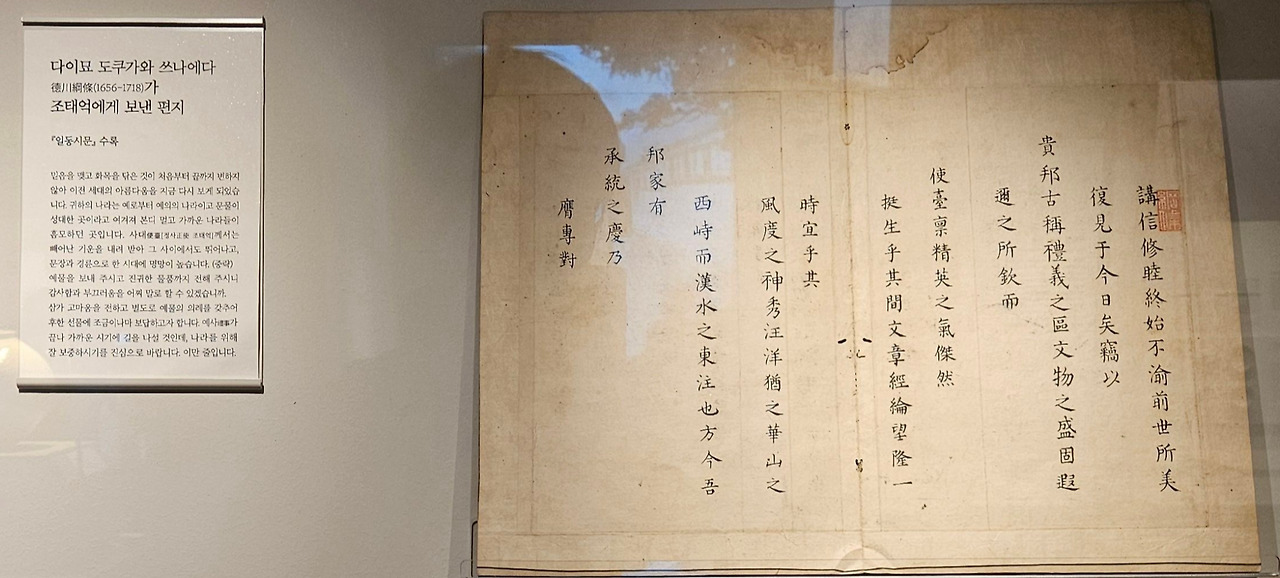 다이묘 도쿠가와 쓰나에다
德川綱條(1656-1718)가
조태억에게 보낸 편지
『일동시문』 수록
믿음을 맺고 화목을 닦은 것이 처음부터 끝까지 변하지
않아 이전 세대의 아름다움을 지금 다시 보게 되었습
니다. 귀하의 나라는 예로부터 예의의 나라이고 문물이
성대한 곳이라고 여겨져 본디 멀고 가까운 나라들이
흠모하던 곳입니다. 사대使臺[정사正使 조태억]께서는
빼어난 기운을 내려 받아 그 사이에서도 뛰어나고,
문장과 경륜으로 한 시대에 명망이 높습니다. (중략)
예물을 보내 주시고 진귀한 물품까지 전해 주시니
감사함과 부끄러움을 어찌 말로 할 수 있겠습니까.
삼가 고마움을 전하고 별도로 예물의 의례를 갖추어
후한 선물에 조금이나마 보답하고자 합니다. 예사禮事가
끝나 가까운 시기에 길을 나설 것인데, 나라를 위해
잘 보중하시기를 진심으로 바랍니다. 이만 줄입니다.
講信修睦終始不渝前世所美
復見于今日矣竊以
貴邦古稱禮義之區文物之盛固遐
邇之所欽而
使臺禀精英之氣傑然
挺生乎其間文章經綸望隆一
時宜乎其
風度之神秀汪洋猶之華山之
西峙而漢水之東注也方今吾
邦家有
承統之慶乃
膺專對